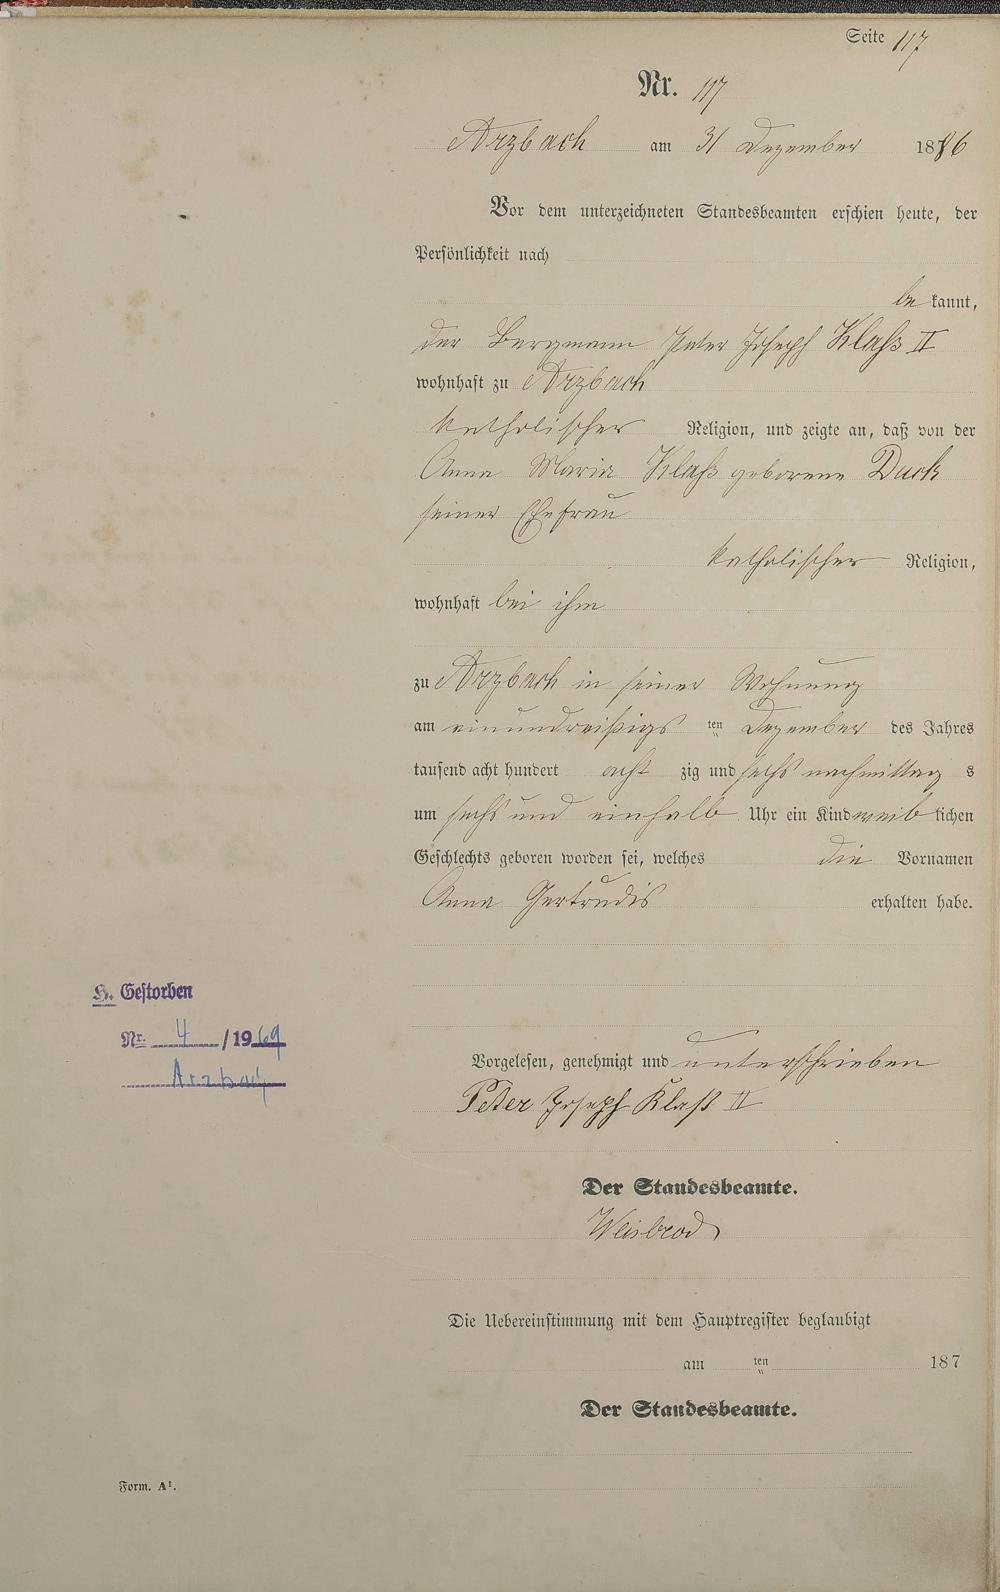 Seite 117
Nr. 117
Arzbach am 31 Dezember 1886
Vor dem unterzeichneten Standesbeamten erschien heute, der
Persönlichkeit nach
be kannt,
der Bergmann Peter Joseph Klaß II
wohnhaft zu Arzbach
katholischer Religion, und zeigte an, daß von der
Anna Maria Klaß geborene Duck
seiner Ehefrau
katholischer Religion,
wohnhaft bei ihm
zu Arzbach in seiner Wohnung
am einundreißigs ten Dezember des Jahres
tausend acht hundert acht zig und sechs nachmittag s
um sechs und einhalb Uhr ein Kind weib lichen
Geschlechts geboren worden sei, welches die Vornamen
Anna Gertrudis erhalten habe.
H. Gestorben
Nr. 4 /1969
Arzbach
Vorgelesen, genehmigt und unterschrieben
Peter Joseph Klaß II
Der Standesbeamte.
Weisbrod
Die Uebereinstimmung mit dem Hauptregister beglaubigt
am ten 187
Der Standesbeamte.
Form. A¹.